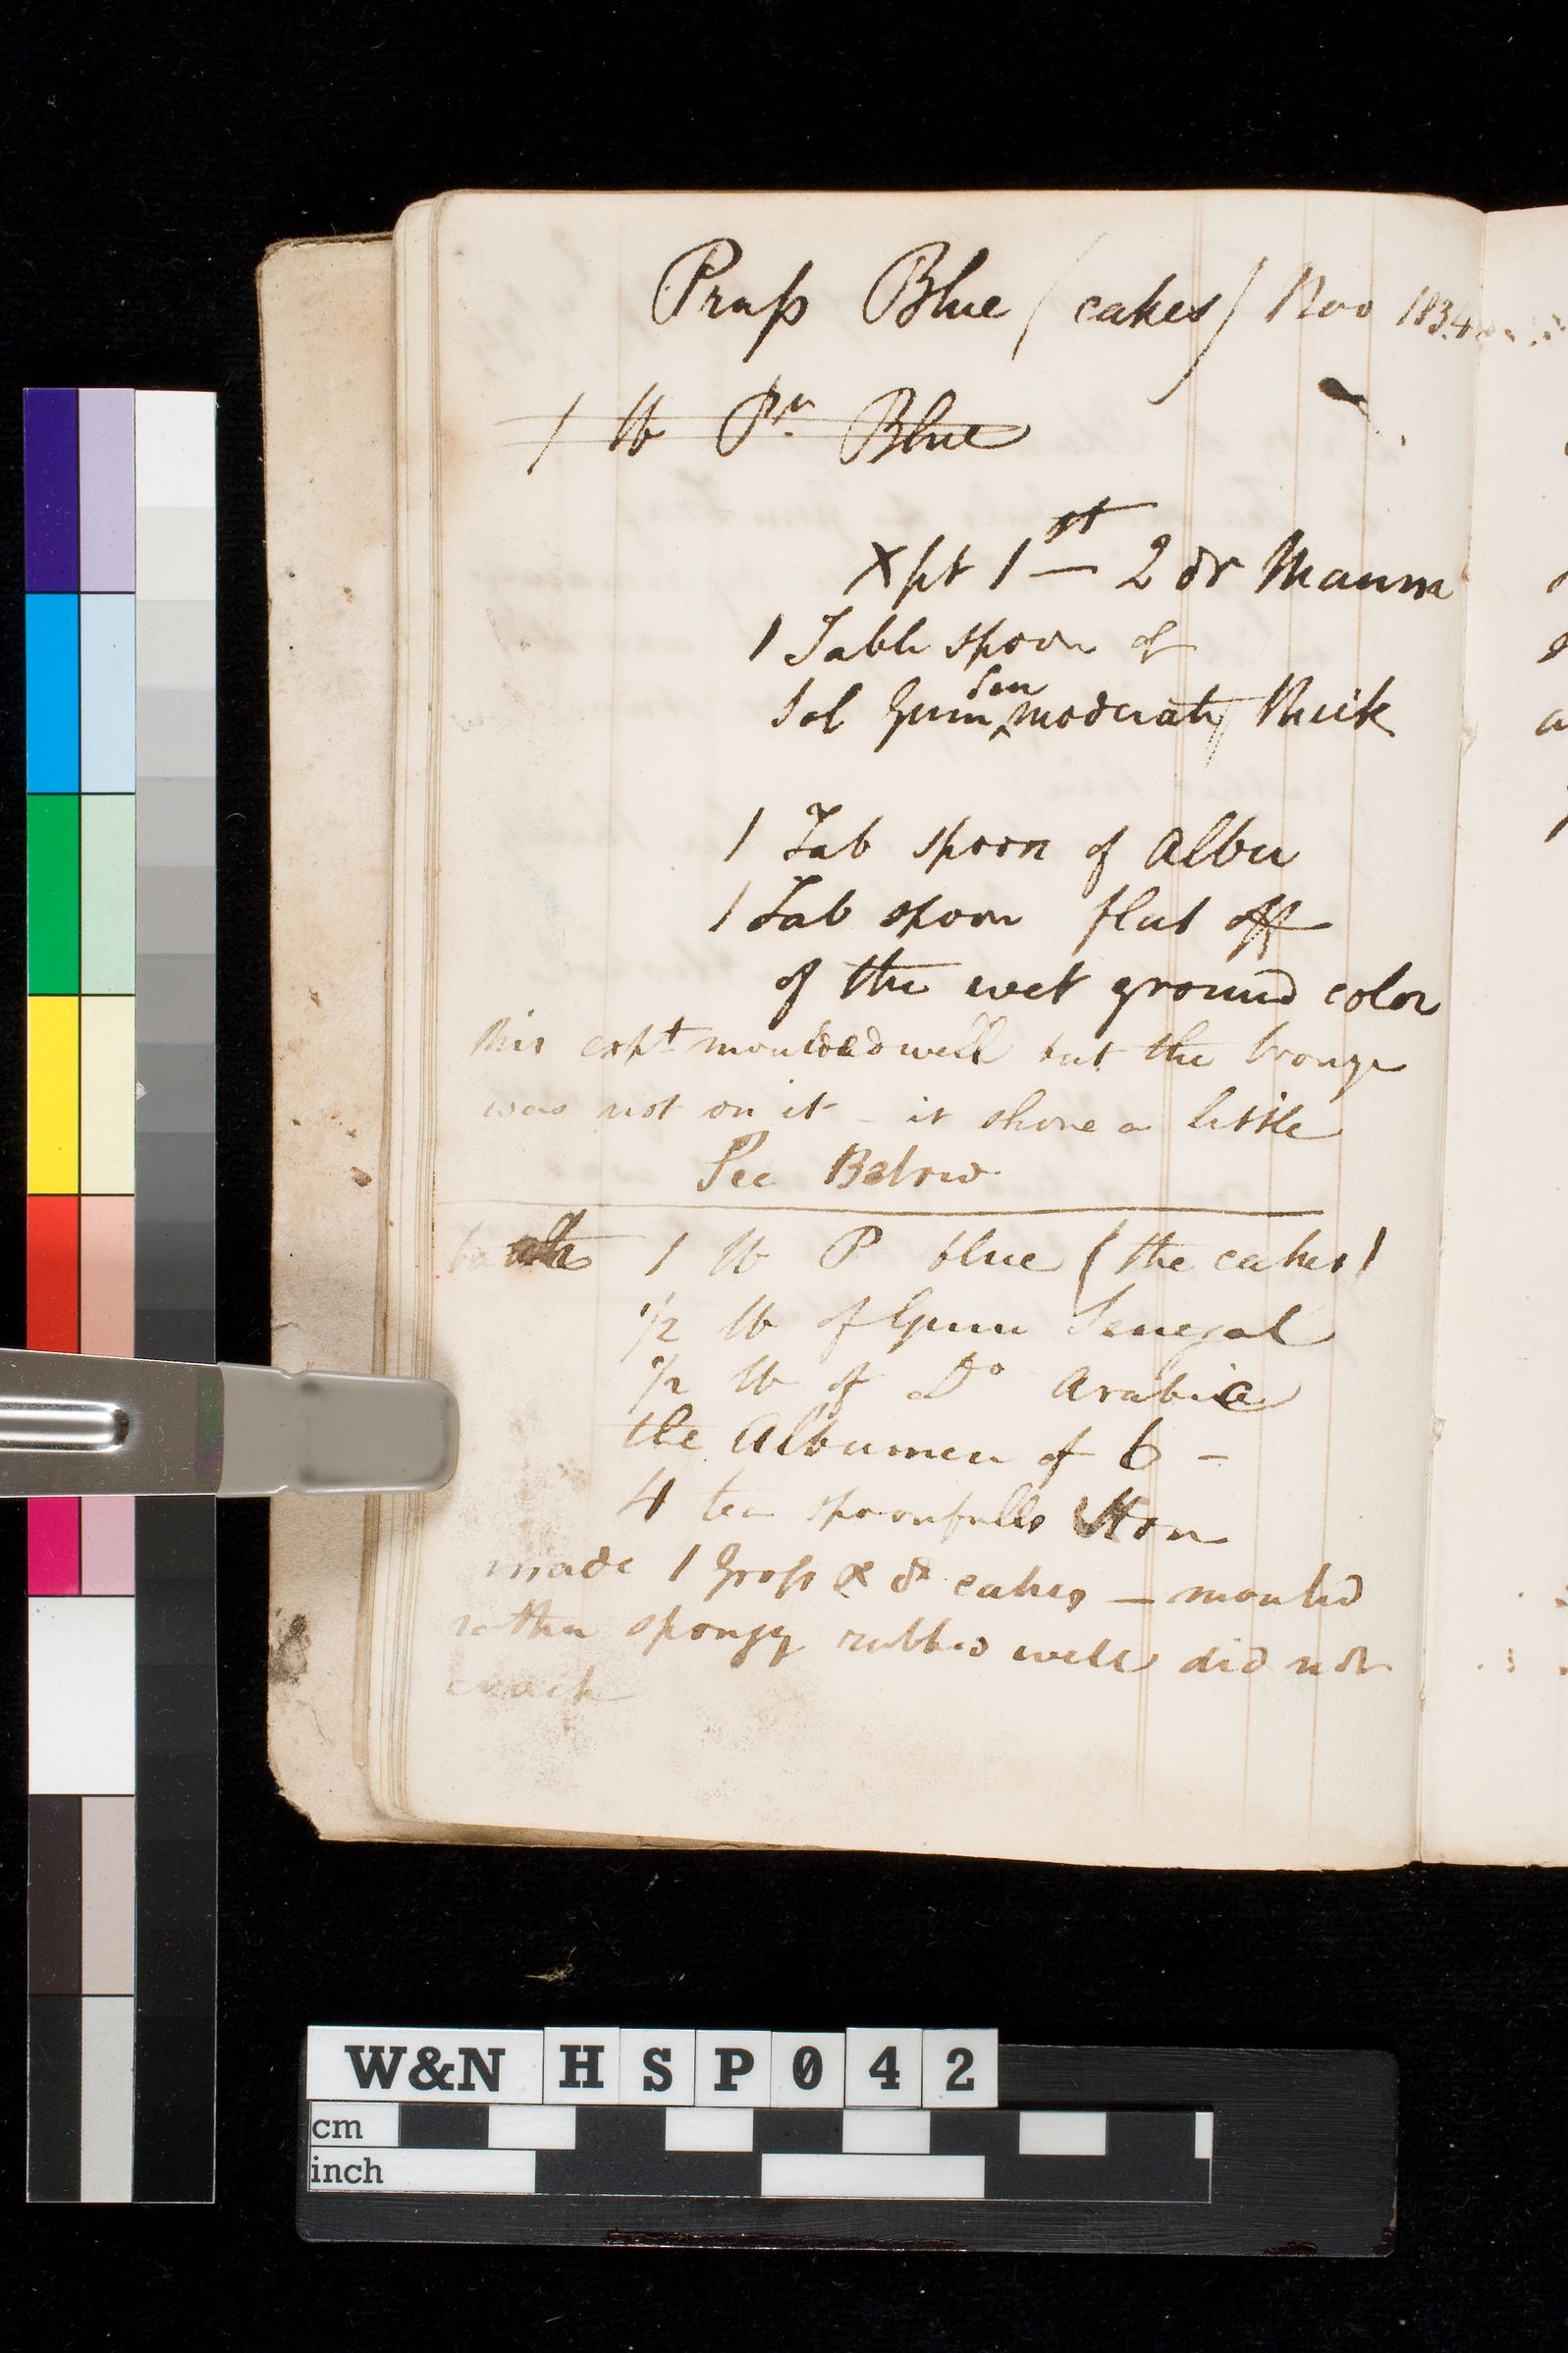 Pruſs Blue (cakes) Nov 1834
1 lb Pn Blue
Xpt 1st 2 dr Manna
1 Table spoon of
Sol Gum Sen moderately thick
1 Tab spoon of Albu
1 Tab spoon flat off
of the wet ground color
this expt moulded well but the bronze
was not on it - it shone a little
See Below
batch 1 lb P blue (the cakes)
1/2 lb of Gum Senegal
1/2 lb of Do Arabic
the Albumen of 6 -
4 tea spoonfulls Hon
made 1 Groſs & cakes - mould
rather spongy rubbed well did not
crack
W&N HSP042
cm
inch